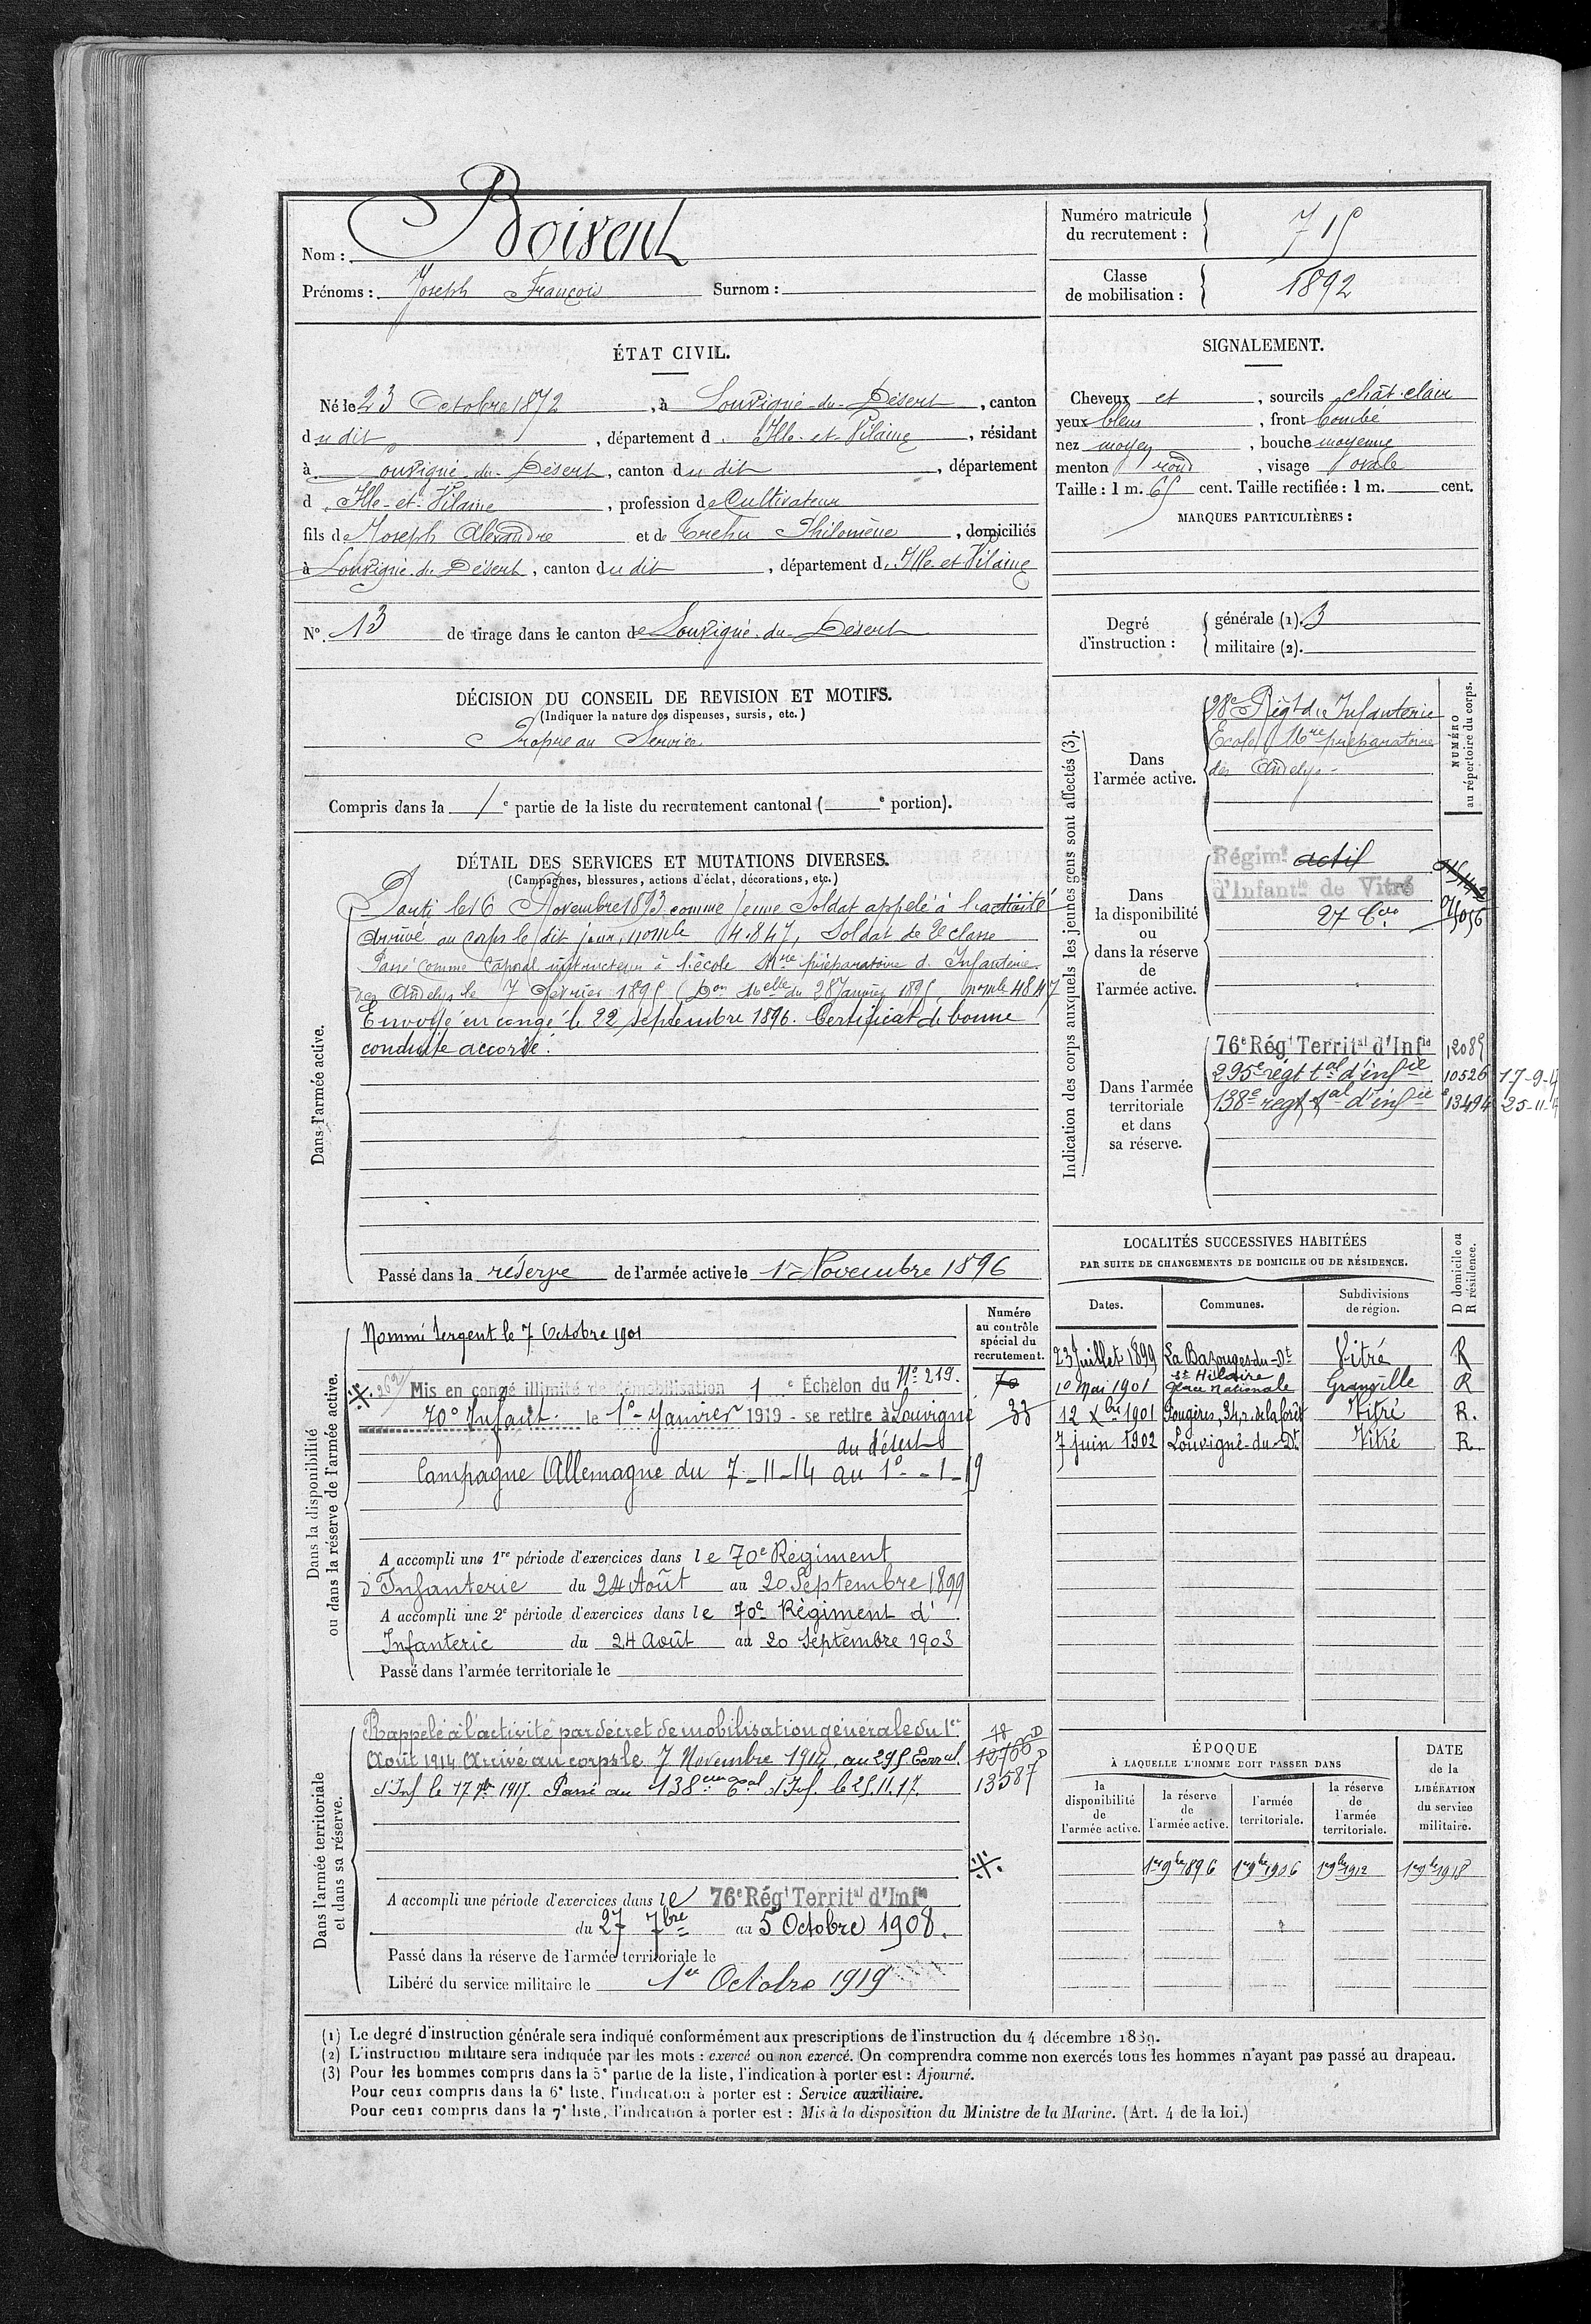 Nom : Boivent
Prénoms : Joseph François Surnom :
Numéro matricule du recrutement : 715
Classe de mobilisation : 1892
ÉTAT CIVIL.
Né le 23 Octobre 1872, à Louvigné-du-Désert, canton
dudit, département d'Ille-et-Vilaine, résidant
à Louvigné-du-Désert, canton dudit, département
d'Ille-et-Vilaine, profession de Cultivateur
fils de Joseph Alexandre et de Trehu Philomène, domiciliés
à Louvigné-du-Désert, canton dudit, département d'Ille-et-Vilaine
N°. 13 de tirage dans le canton de Louvigné-du-Désert
SIGNALEMENT.
Cheveux et, sourcils chât. clair
yeux bleus, front bombé
nez moyen, bouche moyenne
menton rond, visage ovale
Taille : 1 m. 65 cent. Taille rectifiée : 1 m. cent.
MARQUES PARTICULIÈRES :
Degré d'instruction : générale (1). 3
militaire (2).
DÉCISION DU CONSEIL DE REVISION ET MOTIFS.
(Indiquer la nature des dispenses, sursis, etc.)
Propre au Service
Compris dans la 1e partie de la liste du recrutement cantonal ( e portion).
DÉTAIL DES SERVICES ET MUTATIONS DIVERSES.
(Campagnes, blessures, actions d'éclat, décorations, etc.)
Dans l'armée active.
Parti le 16 Novembre 1893 comme jeune Soldat appelé à l'activité
Arrivé au corps le dit jour, nomle 4.847, Soldat de 2e classe
Passé comme Caporal instructeur à l'école Mre préparatoire d'Infanterie
des Andelys le 7 Février 1895 (Don Melle du 28 Janvier 1895, nomle 4847
Envoyé en congé le 22 septembre 1896. Certificat de bonne
conduite accordé.
Passé dans la réserve de l'armée active le 1er Novembre 1896
Indication des corps auxquels les jeunes gens sont affectés (3).
NUMÉRO au répertoire du corps.
Dans l'armée active.
28e Régt d'Infanterie
Ecole Mre préparatoire
des Andelys
Dans la disponibilité ou dans la réserve de l'armée active.
Régimt actif
d'Infantie de Vitré
Dans l'armée territoriale et dans sa réserve.
76e Régt Territal d'Infie 12085
295e régt tal d'infie 10526 17-9-17
138e régt tal d'infie 13494 25-11-17
LOCALITÉS SUCCESSIVES HABITÉES
PAR SUITE DE CHANGEMENTS DE DOMICILE OU DE RÉSIDENCE.
Dates. Communes. Subdivisions de région. D domicile ou R résidence.
23 Juillet 1899 La Bazouges-du-Dt Vitré R
10 Mai 1901 St Hilaire place Nationale Granville R
12 Xbre 1901 Fougères, 34, r. de la forêt Vitré R.
7 juin 1902 Louvigné-du-Dt Vitré R.
Dans la disponibilité ou dans la réserve de l'armée active.
Numéro au contrôle spécial du recrutement.
70
33
Nommé Sergent le 7 Octobre 1901
Mis en congé illimité de démobilisation 1e Échelon du No 219.
70e Infant. le 1er Janvier 1919 - se retire à Louvigné
du désert
Campagne Allemagne du 7-11-14 au 1o-1-19
A accompli une 1re période d'exercices dans le 70e Régiment
d'Infanterie du 24 Août au 20 Septembre 1899
A accompli une 2e période d'exercices dans le 70e Régiment d'
Infanterie du 24 août au 20 Septembre 1903
Passé dans l'armée territoriale le
Dans l'armée territoriale et dans sa réserve.
Rappelé à l'activité par décret de mobilisation générale du 1er
Août 1914 Arrivé au corps le 7 Novembre 1914, au 295 Terral
d'Inf le 17 7bre 1917. Passé au 138ème Tal d'Inf. le 25.11.17.
13587
A accompli une période d'exercices dans le 76e Régt Territal d'Infie
du 27 7bre au 5 Octobre 1908.
Passé dans la réserve de l'armée territoriale le
Libéré du service militaire le 1er Octobre 1919
ÉPOQUE
À LAQUELLE L'HOMME DOIT PASSER DANS
la disponibilité de l'armée active.
la réserve de l'armée active.
l'armée territoriale.
la réserve de l'armée territoriale.
DATE de la LIBÉRATION du service militaire.
1er 9bre 1896 1er 9bre 1906 1er 9bre 1912 1er 9bre 1918
(1) Le degré d'instruction générale sera indiqué conformément aux prescriptions de l'instruction du 4 décembre 1889.
(2) L'instruction militaire sera indiquée par les mots : exercé ou non exercé. On comprendra comme non exercés tous les hommes n'ayant pas passé au drapeau.
(3) Pour les hommes compris dans la 5e partie de la liste, l'indication à porter est : Ajourné.
Pour ceux compris dans la 6e liste, l'indication à porter est : Service auxiliaire.
Pour ceux compris dans la 7e liste, l'indication à porter est : Mis à la disposition du Ministre de la Marine. (Art. 4 de la loi.)